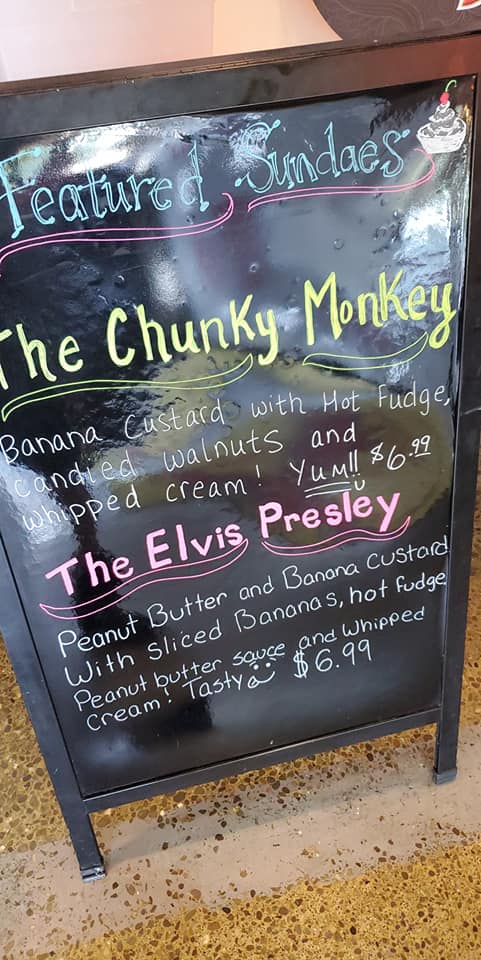 Featured Sundaes
The Chunky Monkey
Banana Custard with Hot Fudge,
candied walnuts and
whipped cream! Yum!! $6.99
The Elvis Presley
Peanut Butter and Banana Custard
With Sliced Bananas, hot fudge
Peanut butter sauce and Whipped
Cream! Tasty $6.99